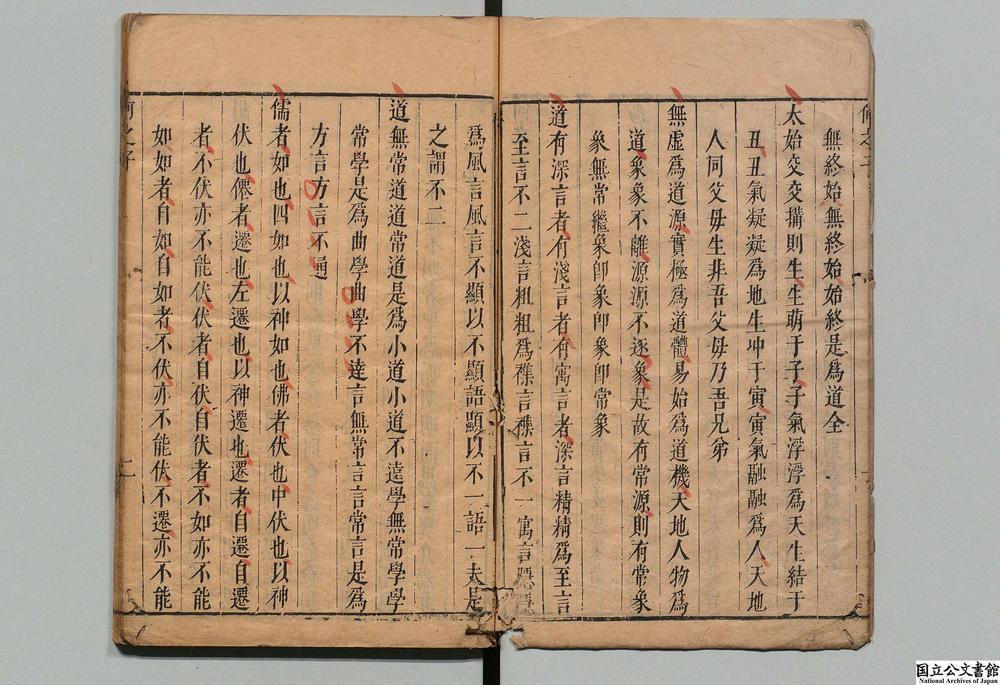 無終始無終始始終是爲道全
太始交交搆則生生萌于子子氣浮浮爲天生結于
丑丑氣凝凝爲地生冲于寅寅氣融融爲人天地
人同父母生非吾父母乃吾兄弟
無虛爲道源實極爲道體易始爲道機天地人物爲
道象象不離源源不逐象是故有常源則有常象
象無常繼象卽象卽象卽常象
道有深言者有淺言者有寓言者深言精精爲至言
至言不二淺言粗粗爲襍言襍言不一寓言隱隱
爲風言風言不顯以不顯語顯以不一語一夫是
之謂不二
道無常道道常道是爲小道小道不遠學無常學學
常學是爲曲學曲學不達言無常言言常言是爲
方言方言不通
儒者如也四如也以神如也佛者伏也中伏也以神
伏也僊者遷也左遷也以神遷也遷者自遷自遷
者不伏亦不能伏伏者自伏自伏者不如亦不能
如如者自如自如者不伏亦不能伏不遷亦不能
何之子 二
国立公文書館
National Archives of Japan